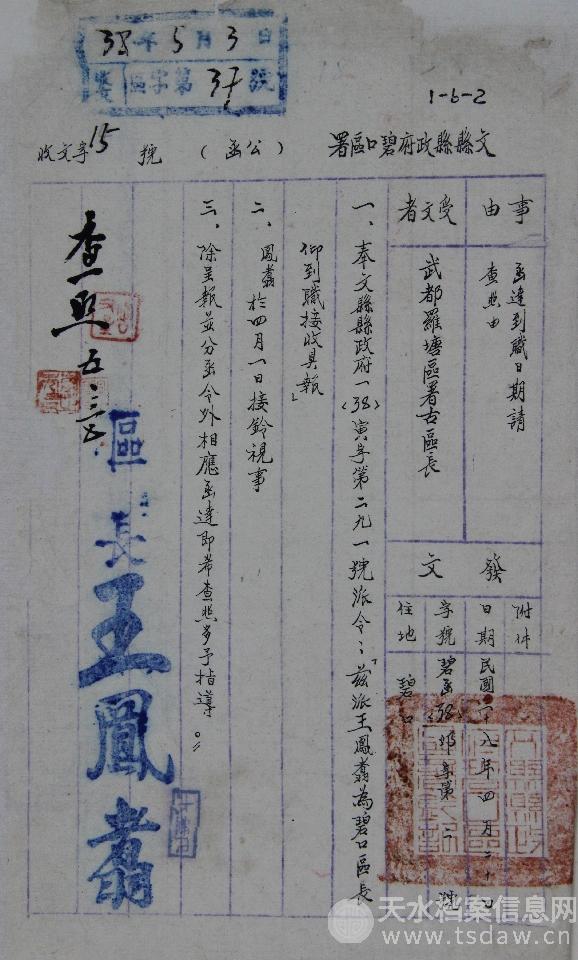 38年5月3日
收區字第37號
1-6-2
文縣縣政府碧口區署（公函）
收文字15號
事由
函達到職日期請
查照由
受文者
武都羅塘區署古區長
發文
附件
日期 民國卅八年四月二十日
字號 碧函(38)卯字第二號
住地 碧口
一、奉文縣縣政府一(38)寅字第二九一號派令：「茲派王鳳翥為碧口區長
仰到職接收具報」
二、鳳翥於四月一日接鈐視事
三、除呈報並分函令外相應函達即希查照多予指導。
區長王鳳翥
查照 五、三、
天水档案信息网
www.tsdaw.cn